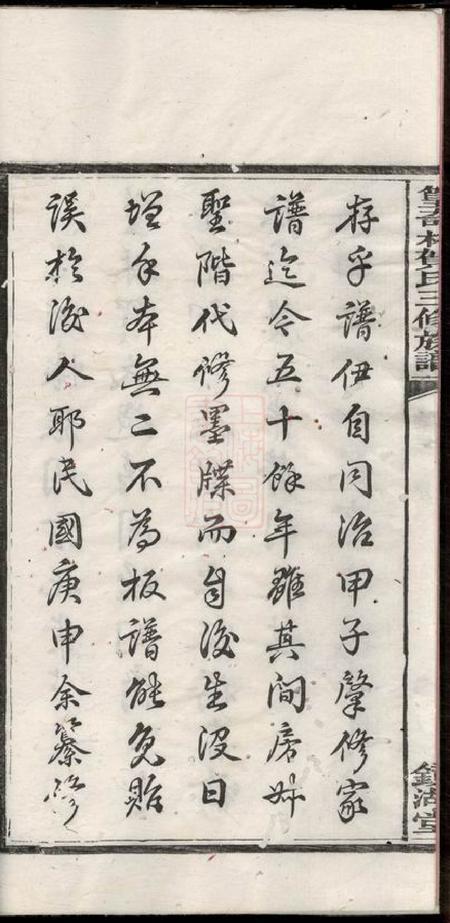 三修族譜
存乎譜伊自同治甲子肇修家
譜迄今五十餘年雖其間房
聖階代修墨牒而自後生沒日
增手本無二不為板譜能免貽
誤於後人耶民國庚申余纂修
鏡湖堂